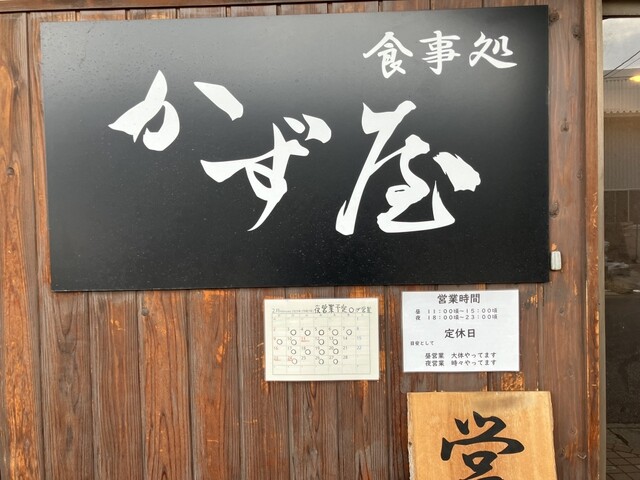 食事処
かず屋
夜営業予定
営業時間
昼 11:00頃~15:00頃
夜 18:00頃~23:00頃
定休日
目安として
昼営業 大体やってます
夜営業 時々やってます
営